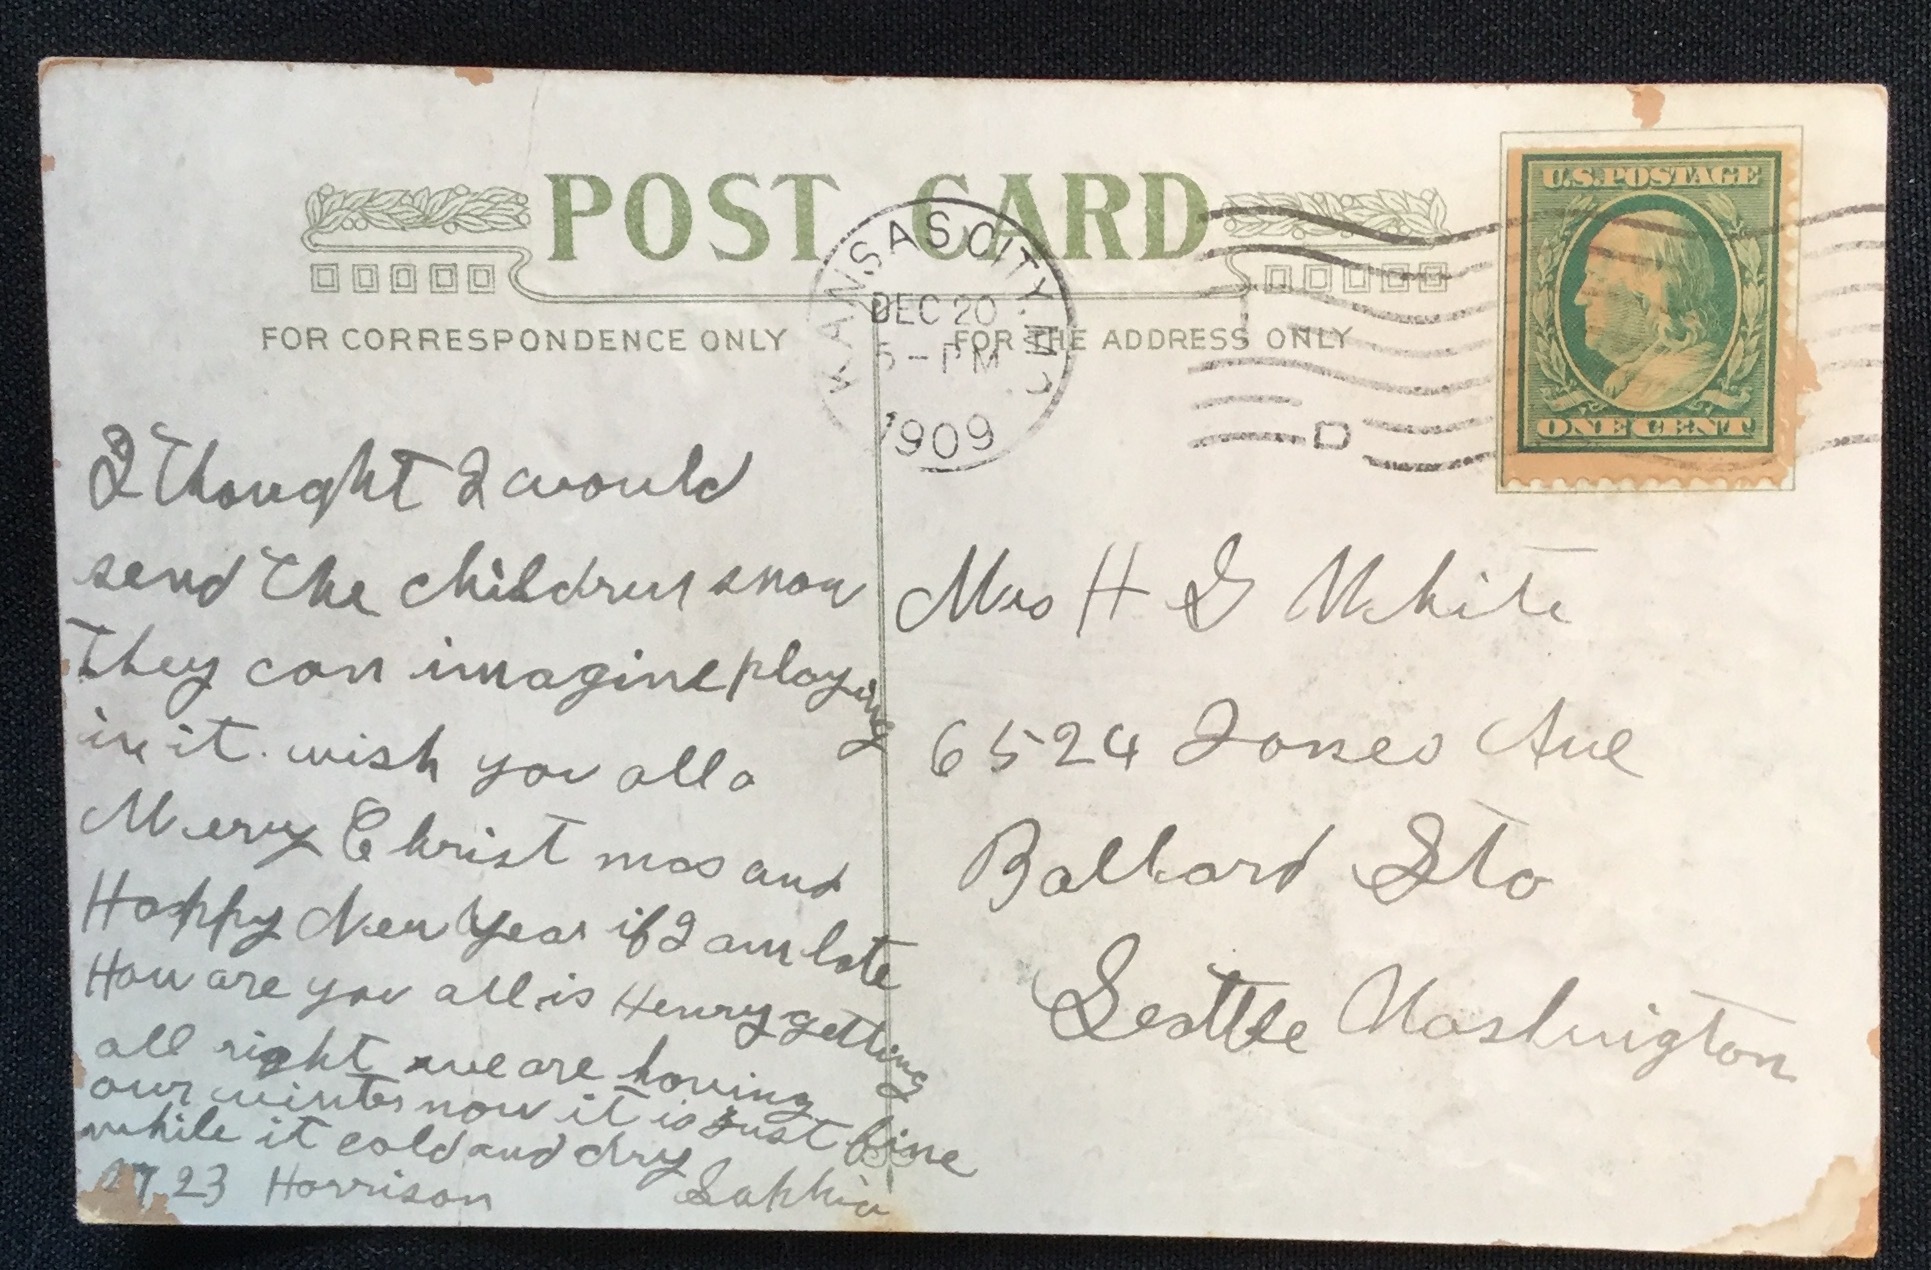 POST CARD
FOR CORRESPONDENCE ONLY
FOR THE ADDRESS ONLY
KANSAS CITY, MO.
DEC 20
5-PM
1909
D
U.S. POSTAGE
ONE CENT
I thought I would
send the children snow
they can imagine playing
in it. wish you all a
Merry Christmas and
Happy New Year if I am late
How are you all is Henry getting
all right we are having
our winter now it is just fine
while it cold and dry
2723 Harrison Sophia
Mrs H G White
6524 Jones Ave
Ballard Sta
Seattle Washington